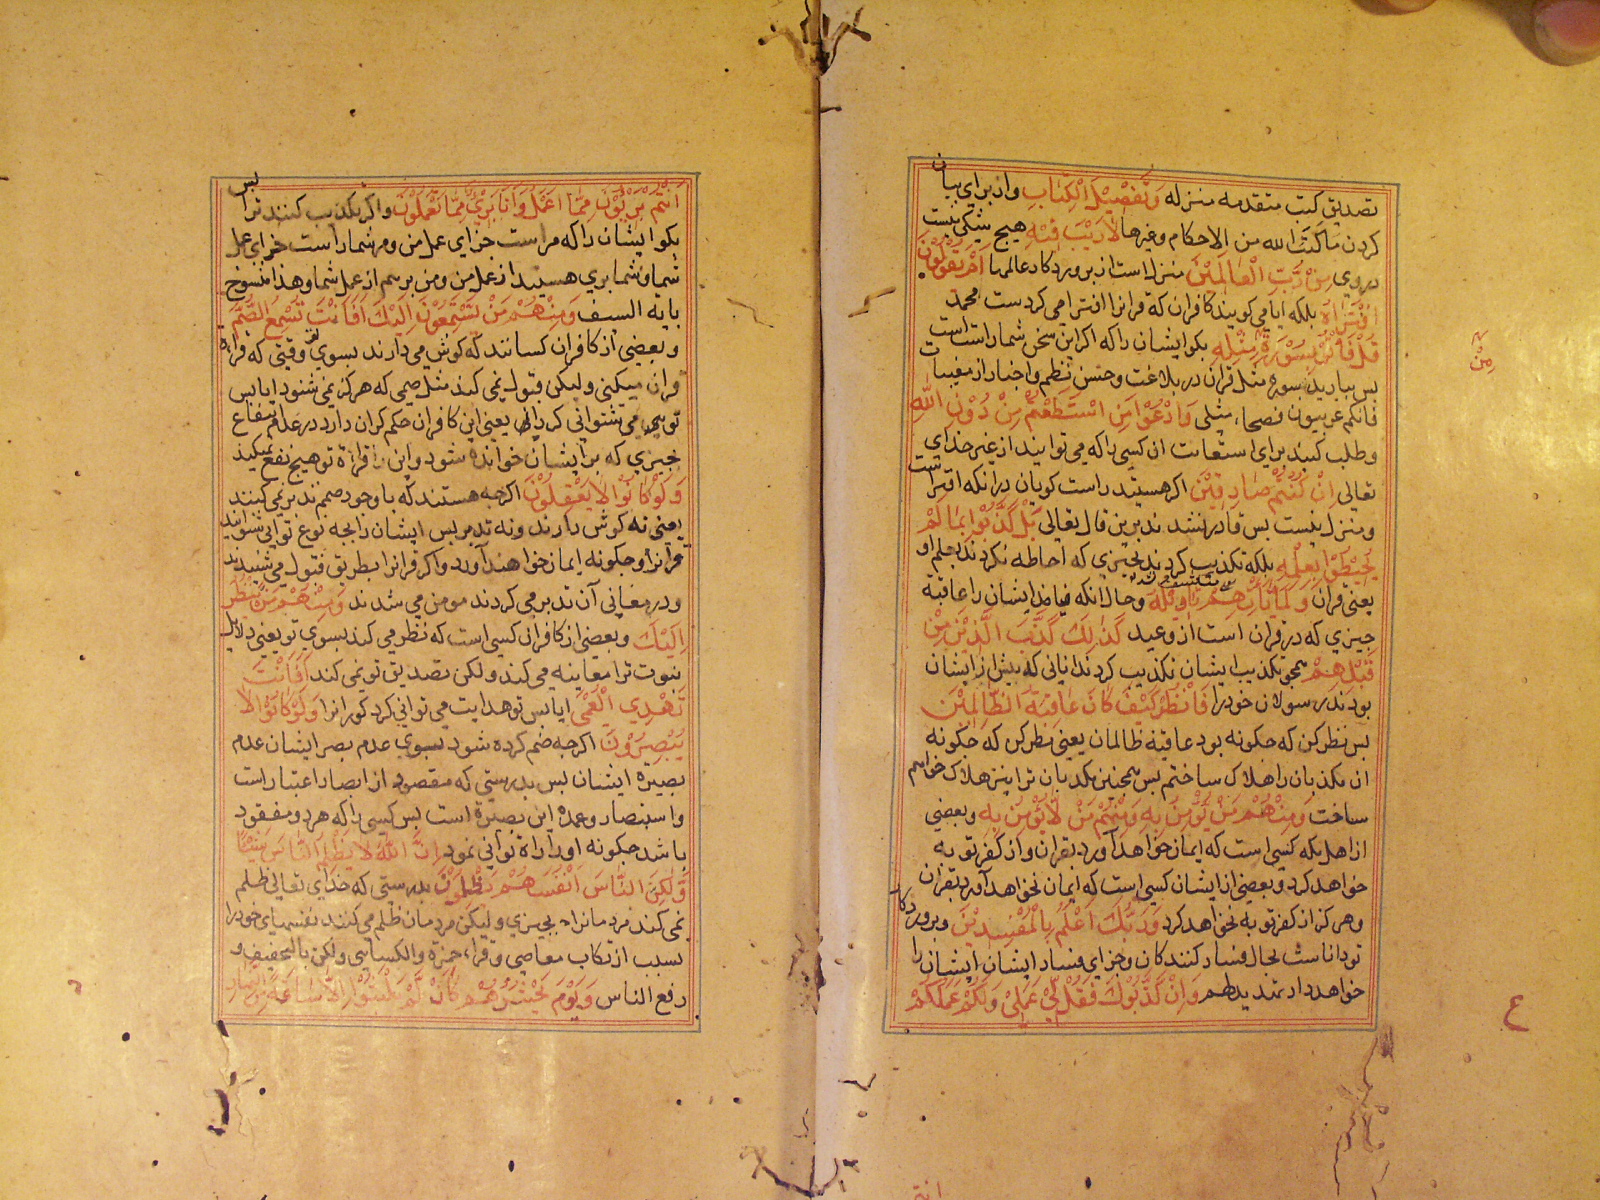 تصدیق کتب متقدمه منزله وَتَفْصِيْلَ الْكِتَابِ واز برای بیان
کردن ما کتب الله من الاحکام وغیرها لَارَيْبَ فِيْهِ هیچ شکی نیست
دروی مِنْ رَّبِّ الْعَالَمِيْنَ منزل است از پروردکار عالمیا اَمْ يَقُوْلُوْنَ
افْتَرَاهُ بلکه ایا می کویند کافران که قرانرا افترا می کردست محمد
قُلْ فَأْتُوْا بِسُوْرَةٍ مِثْلِهٖ بکو ایشان را که اکر این سخن شما راست است
پس بیارید سوره مثل قران در بلاغت وحسن نظم واخبار از مغیبات
فانکم عربیون فصحاء مثلی وَادْعُوْا مَنِ اسْتَطَعْتُمْ مِنْ دُوْنِ اللهِ
وطلب کنید برای استعانت ان کسی را که می توانید از غیر خدای
تعالی اِنْ كُنْتُمْ صَادِقِيْنَ اکر هستید راست کویان در انکه افتراست
ومنزل نیست پس قادر نشدند برین قال تعالی بَلْ كَذَّبُوْا بِمَا لَمْ
يُحِيْطُوْا بِعِلْمِهٖ بلکه تکذیب کردند بچیزی که احاطه نکردند بعلم او
یعنی قران وَلَمَّا يَأْتِهِمْ تَأْوِيْلُهٗ وحال انکه نیامد ایشان را عاقبة
چیزی که در قران است از وعید كَذٰلِكَ كَذَّبَ الَّذِيْنَ مِنْ
قَبْلِهِمْ همچو تکذیب ایشان تکذیب کردند انانی که پیش از ایشان
بودند رسولان خود را فَانْظُرْ كَيْفَ كَانَ عَاقِبَةُ الظَّالِمِيْنَ
پس نظر کن که چکونه بود عاقبة ظالمان یعنی نظر کن که چکونه
ان مکذبان را هلاک ساختم پس همچنین مکذبان ترا نیز هلاک خواهم
ساخت وَمِنْهُمْ مَنْ يُؤْمِنُ بِهٖ وَمِنْهُمْ مَنْ لَّا يُؤْمِنُ بِهٖ وبعضی
از اهل مکه کسی است که ایمان خواهد آورد بقران واز کفر توبه
خواهد کرد وبعضی از ایشان کسی است که ایمان نخواهد آورد بقران
وهرکز از کفر توبه نخواهد کرد وَرَبُّكَ اَعْلَمُ بِالْمُفْسِدِيْنَ وپروردکار
تو داناست بحال فساد کنندکان وجزای فساد ایشان ایشان را
خواهد داد تهدید لهم وَاِنْ كَذَّبُوْكَ فَقُلْ لِّيْ عَمَلِيْ وَلَكُمْ عَمَلُكُمْ
مِنْ
ع
اَنْتُمْ بَرِيْئُوْنَ مِمَّا اَعْمَلُ وَاَنَا بَرِيْءٌ مِمَّا تَعْمَلُوْنَ واکر تکذیب کنند ترا پس
بکو ایشان را که مراست جزای عمل من ومر شما راست جزای عمل
شما وشما بری هستید از عمل من ومن بریم از عمل شما وهذا منسوخ
بایه السیف وَمِنْهُمْ مَنْ يَسْتَمِعُوْنَ اِلَيْكَ اَفَاَنْتَ تُسْمِعُ الصُّمَّ
وبعضی از کافران کسانند که کوش می دارند بسوی تو وقتی که قراة
قران میکنی ولیکن قبول نمی کنند مثل صمی که هرکز نمی شنود ایا پس
تو می شنوانی کران را یعنی این کافران حکم کران دارد در عدم انتفاع
چیزی که بر ایشان خوانده شود واین را قراة تو هیچ نفع نمیکند
وَلَوْ كَانُوْا لَا يَعْقِلُوْنَ اکرچه هستند که با وجود صمم تدبر نمی کنند
یعنی نه کوش دارند ونه تدبر پس ایشان را بچه نوع توانی شنوانید
قرانرا وچکونه ایمان خواهند آورد واکر قرانرا بطریق قبول می شنیدند
ودر معانی آن تدبر می کردند مومن می شدند وَمِنْهُمْ مَنْ يَنْظُرُ
اِلَيْكَ وبعضی از کافران کسی است که نظر می کند بسوی تو یعنی دلایل
نبوت ترا معاینه می کند ولکن تصدیق تو نمی کند اَفَاَنْتَ
تَهْدِي الْعُمْيَ ایا پس تو هدایت می توانی کرد کورانرا وَلَوْ كَانُوْا لَا
يُبْصِرُوْنَ اکرچه ضم کرده شود بسوی عدم بصر ایشان عدم
بصیرة ایشان پس بدرستی که مقصود از ابصار اعتبار است
واستبصار وعمده این بصیرة است پس کسی را که هر دو مفقود
باشد چکونه او را راه توانی نمود اِنَّ اللهَ لَا يَظْلِمُ النَّاسَ شَيْئًا
وَّلٰكِنَّ النَّاسَ اَنْفُسَهُمْ يَظْلِمُوْنَ بدرستی که خدای تعالی ظلم
نمی کند مردمانرا بچیزی ولیکن مردمان ظلم می کنند نفسهای خود را
بسبب ارتکاب معاصی وقراء حمزة والکسائی ولکن بالتخفیف و
رفع الناس وَيَوْمَ يَحْشُرُهُمْ كَاَنْ لَّمْ يَلْبَثُوْا اِلَّا سَاعَةً مِّنَ النَّهَارِ